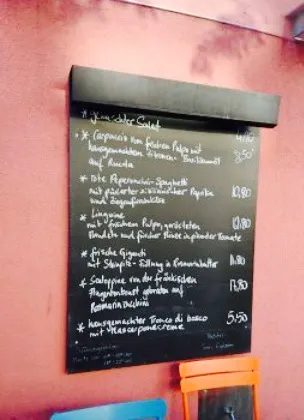 * gemischter Salat 4,90
* Carpaccio vom frischen Pulpo mit
hausgemachtem Zitronen- Basilikumöl
auf Rucola 8,50
* rote Peperoncini-Spaghetti
mit pürierter sizilianischer Paprika
und Ziegenfrischkäse 10,80
* Linguine
mit frischem Pulpo, gerösteten
Mandeln und frischer Minze in pikanter Tomate 12,80
* frische Giganti
mit Steinpilz-Füllung in Rosmarinbutter 11,80
* Scaloppine von der fränkischen
Flugentenbrust gebraten auf
Rosmarin Zucchini 17,80
* hausgemachter Tronco di bosco
mit Mascarponecreme 5,50